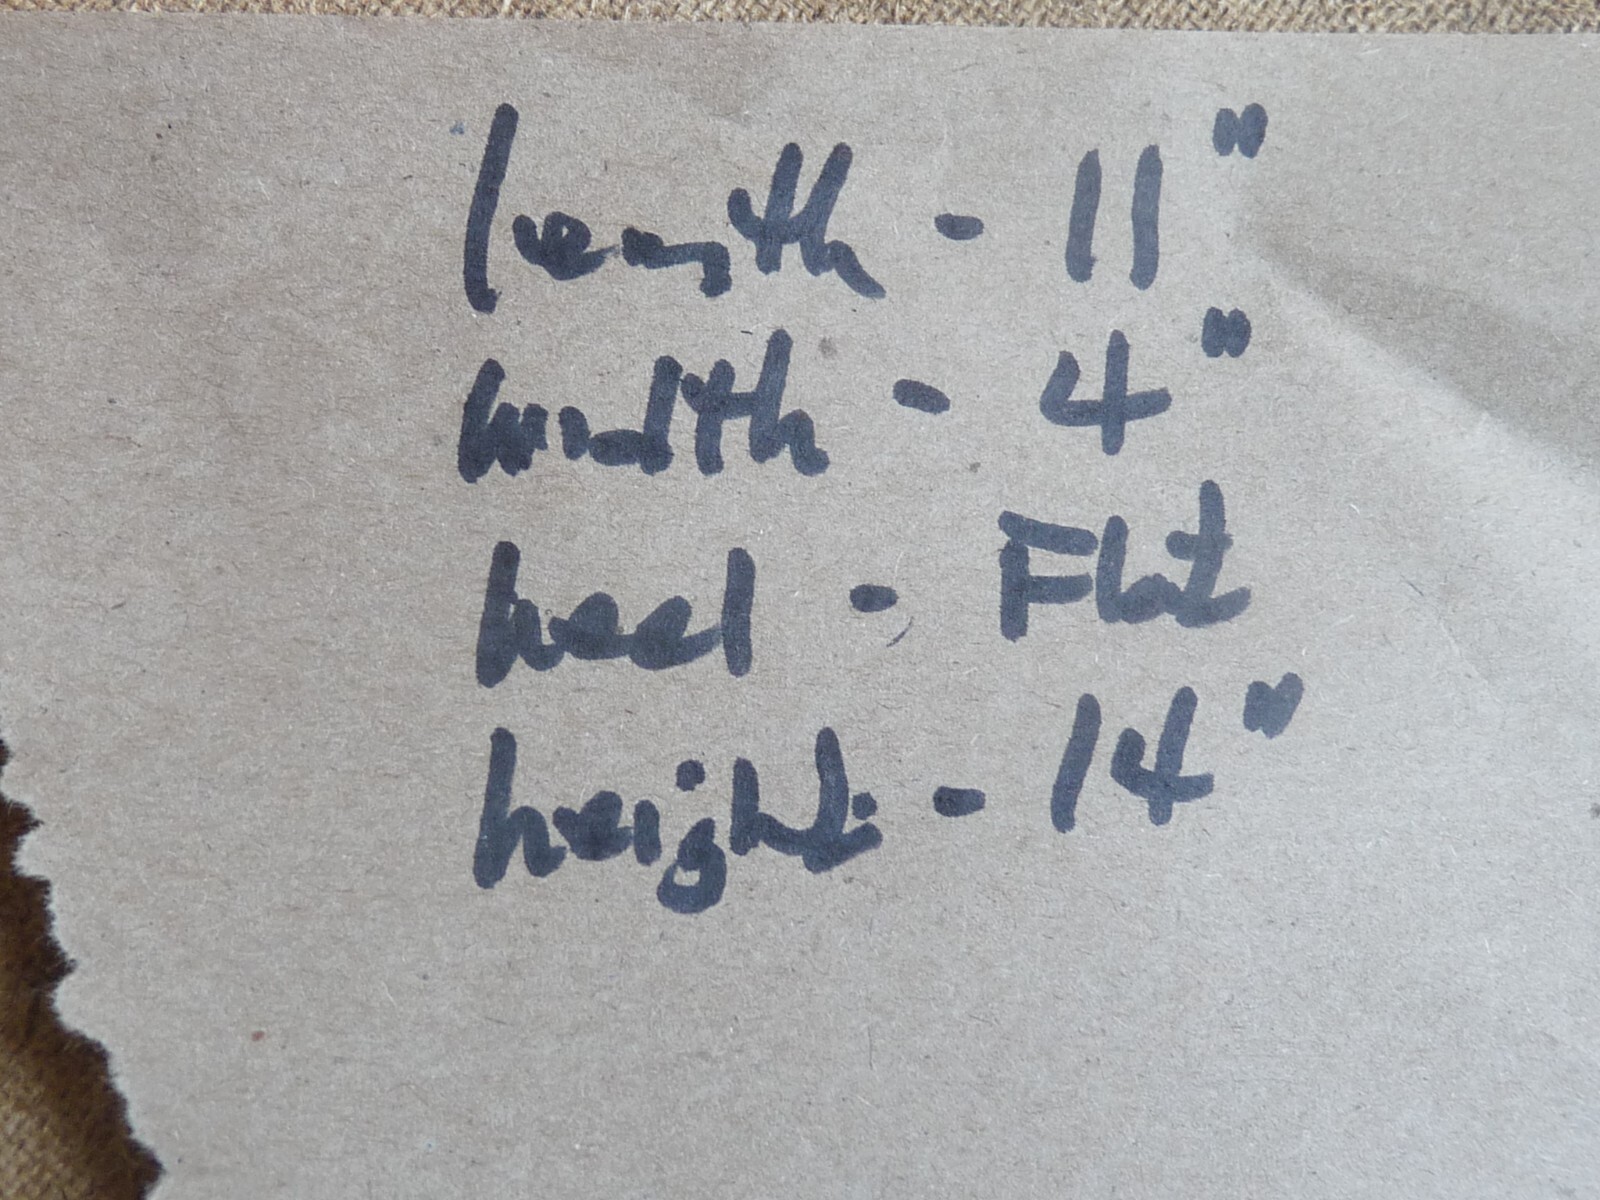 length - 11"
width - 4"
heel - Flat
height - 14"